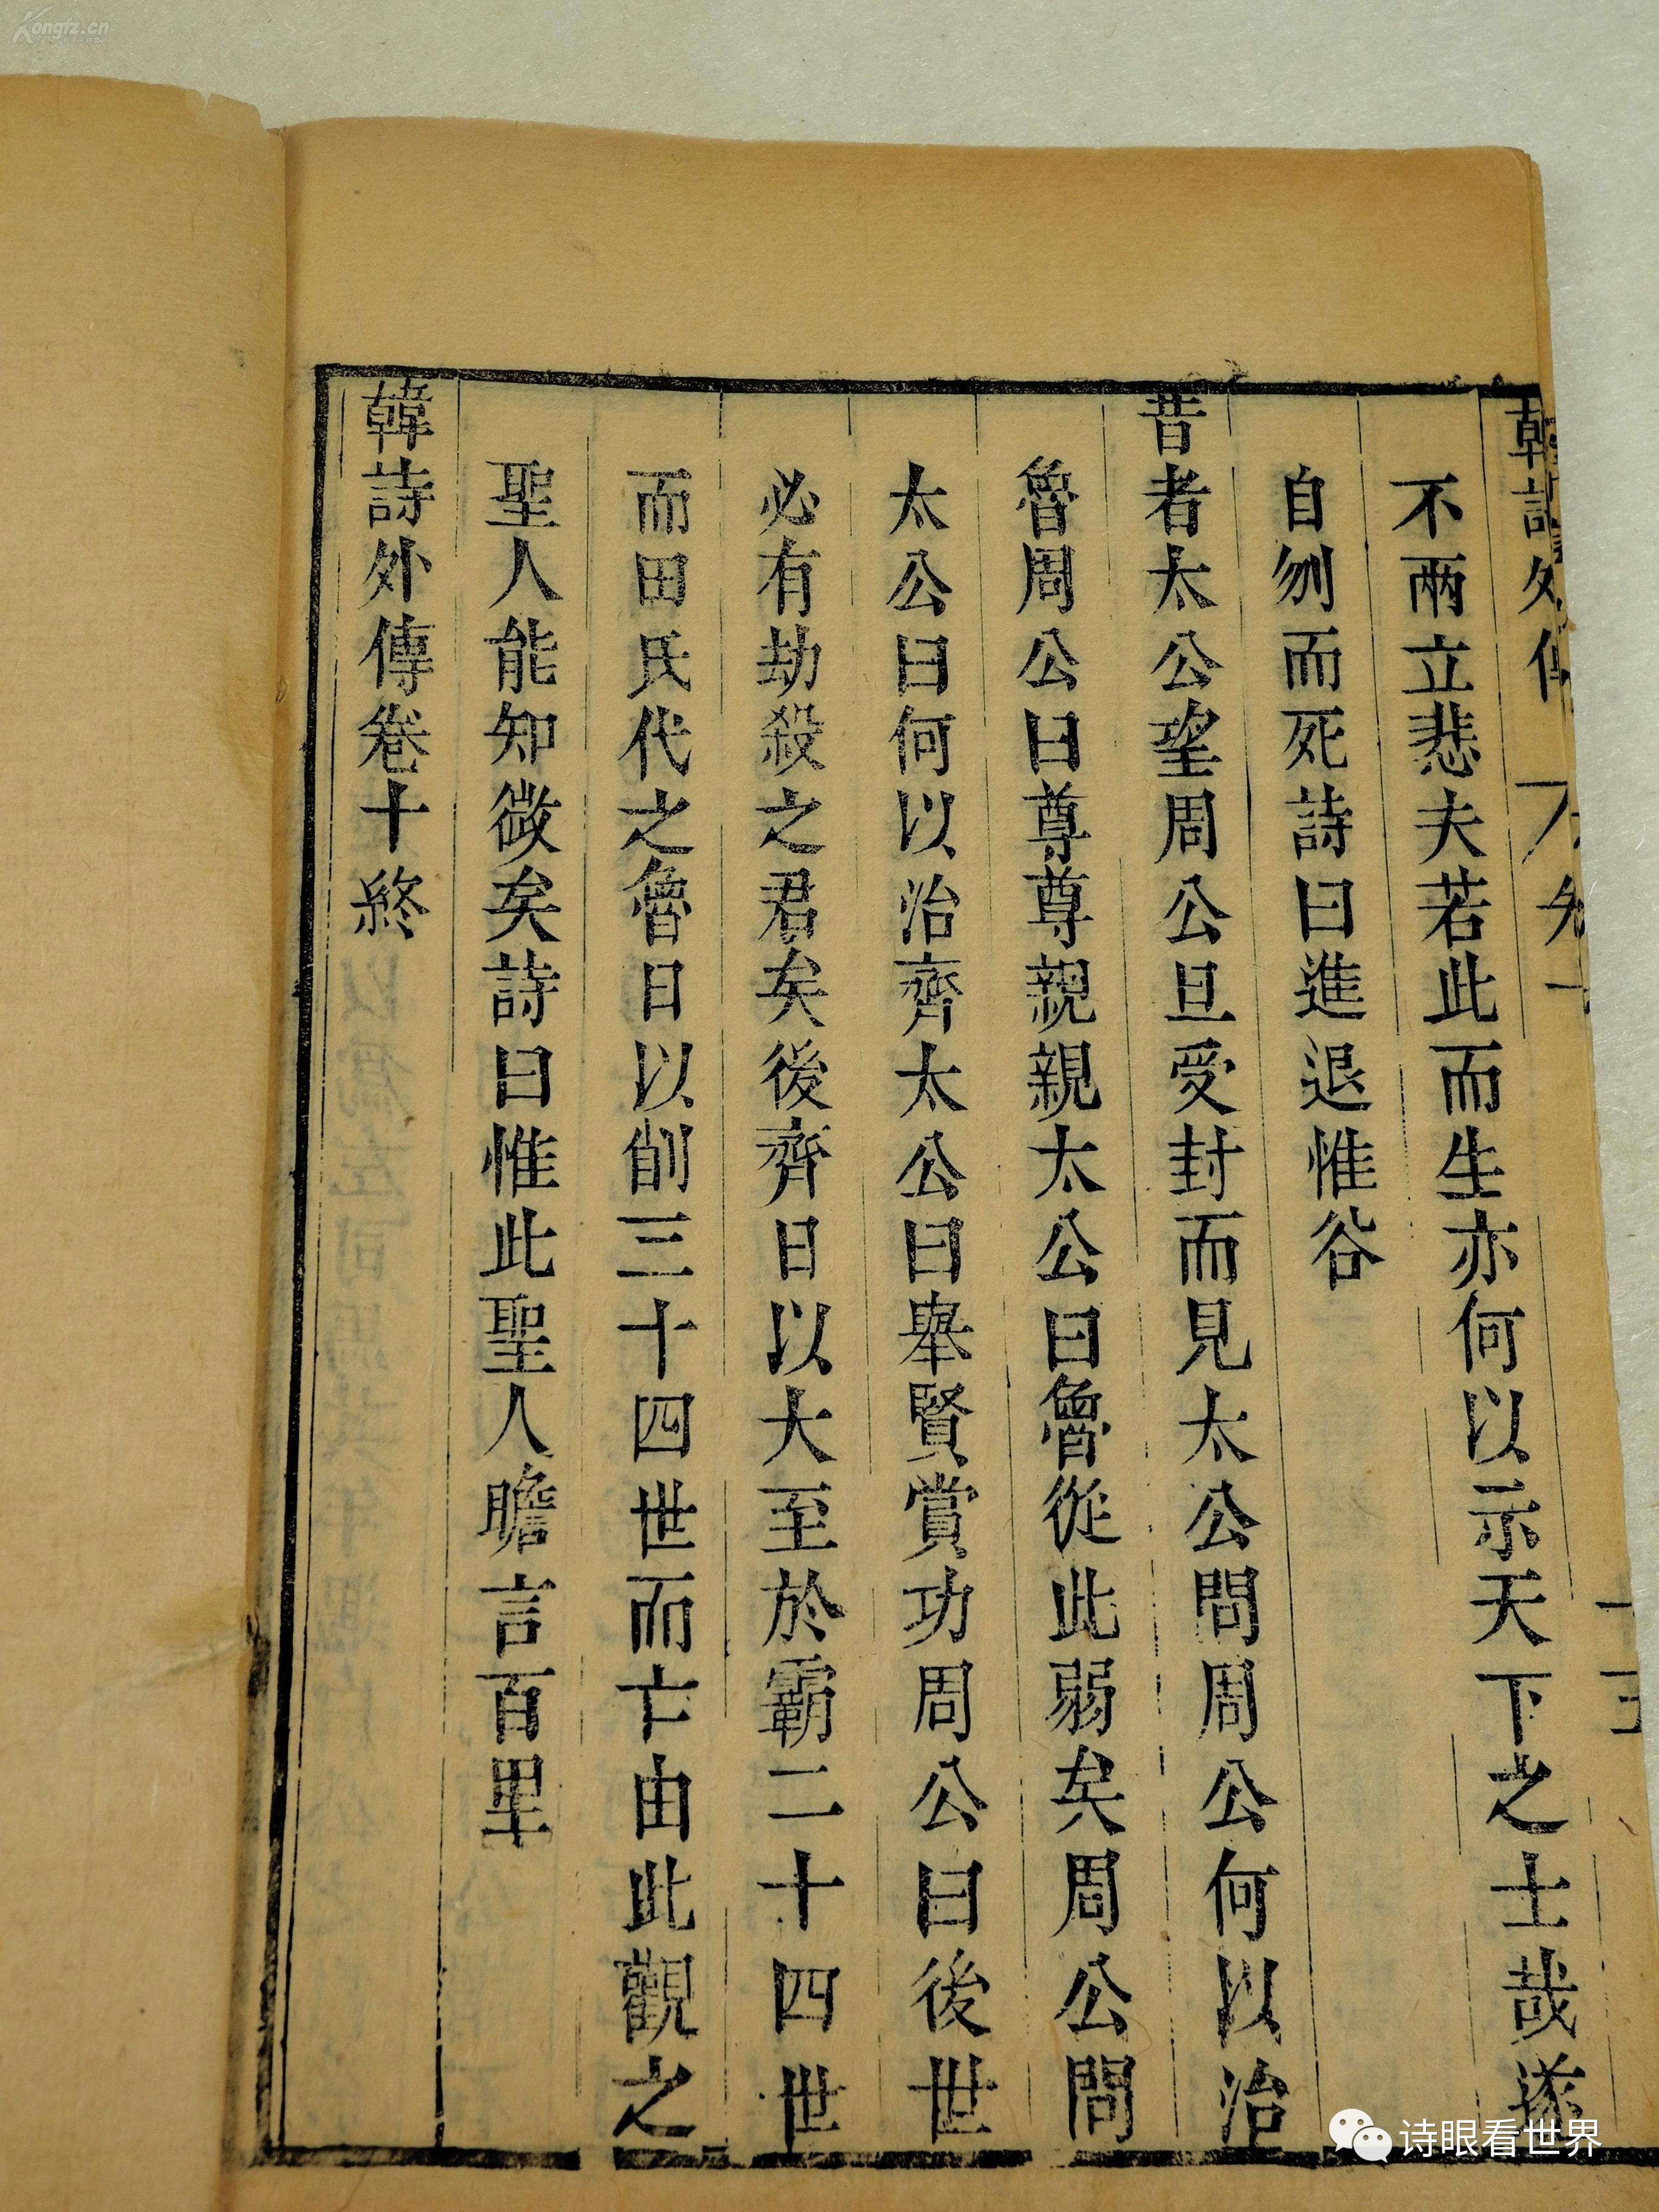 不兩立悲夫若此而生亦何以示天下之士哉遂
自刎而死詩曰進退惟谷
昔者太公望周公旦受封而見太公問周公何以治
魯周公曰尊尊親親太公曰魯從此弱矣周公問
太公曰何以治齊太公曰舉賢賞功周公曰後世
必有劫殺之君矣後齊日以大至於霸二十四世
而田氏代之魯日以削三十四世而亡由此觀之
聖人能知微矣詩曰惟此聖人瞻言百里
韓詩外傳卷十終
Kongfz.cn
诗眼看世界